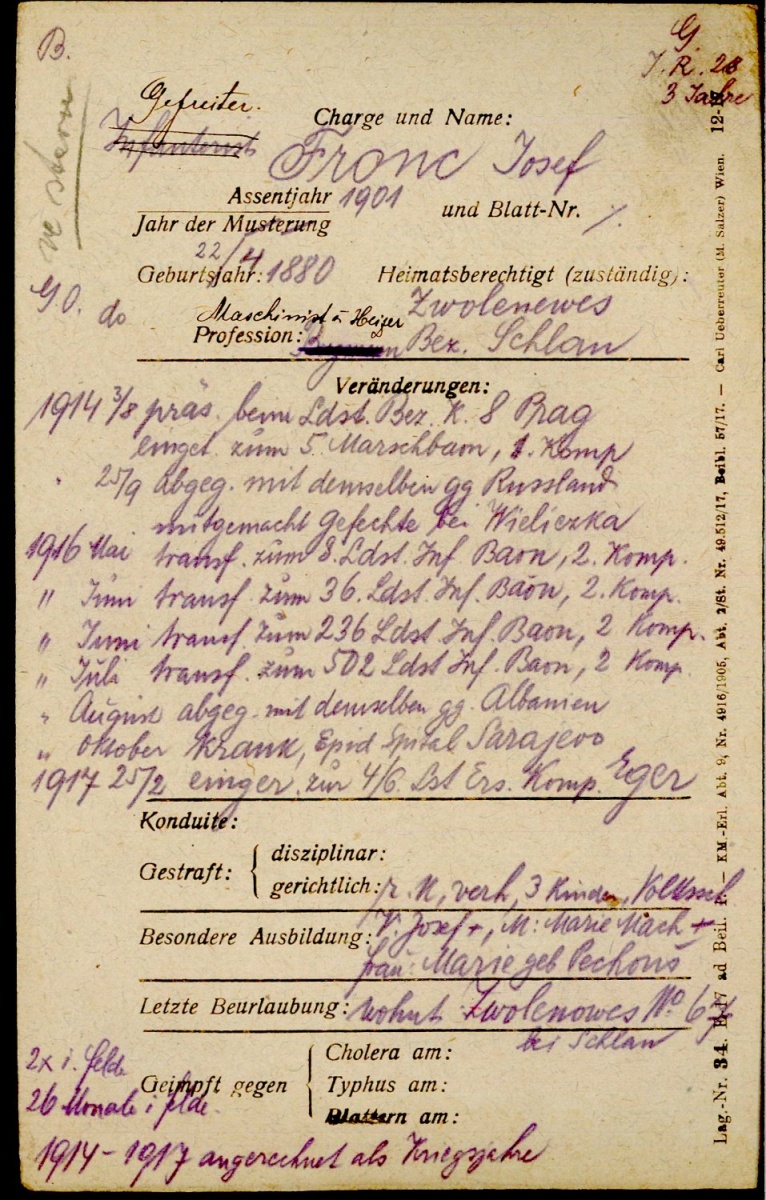 B.
G.
J. R. 28
3 Jahre
Gefreiter.
Charge und Name:
Infanterist Franc Josef
Assentjahr 1901 und Blatt-Nr. /.
Jahr der Musterung
22/4
Geburtsjahr: 1880 Heimatsberechtigt (zuständig):
G O. do Maschinist u Heizer Zwolenewes
Profession: Bez. Schlan
Veränderungen:
1914 3/8 präs. beim Ldst. Bez. K. 8 Prag
einget. zum 5. Marschbaon, 1. Komp
" 25/9 abgeg. mit demselben gg Russland
mitgemacht Gefechte bei Wieliczka
1916 Mai transf. zum 8. Ldst. Inf. Baon, 2. Komp.
" Juni transf. zum 36. Ldst. Inf. Baon, 2. Komp.
" Juni transf. zum 236 Ldst. Inf. Baon, 2 Komp.
" Juli transf. zum 502 Ldst Inf. Baon, 2 Komp.
" August abgeg. mit demselben gg. Albanien
" Oktober krank, Epid Spital Sarajevo
1917 25/2 einger. zur 4/6. Lst Ers. Komp. Eger
Konduite:
Gestraft: disziplinar:
gerichtlich: r. K, verh, 3 Kinder, Volkssch
Besondere Ausbildung: V: Josef +, M: Marie Mach +
frau: Marie geb
Letzte Beurlaubung: wohnt Zwolenowes No 67
bei Schlan
2x i. felde
26 Monate i felde.
Geimpft gegen Cholera am:
Typhus am:
Blattern am:
1914-1917 angerechnet als Kriegsjahre
Lag.-Nr. 34. ad Beil. — KM.-Erl. Abt. 9, Nr. 4916/1905, Abt. 2/St. Nr. 49.512/17, Beibl. 57/17. — Carl Ueberreuter (M. Salzer) Wien.